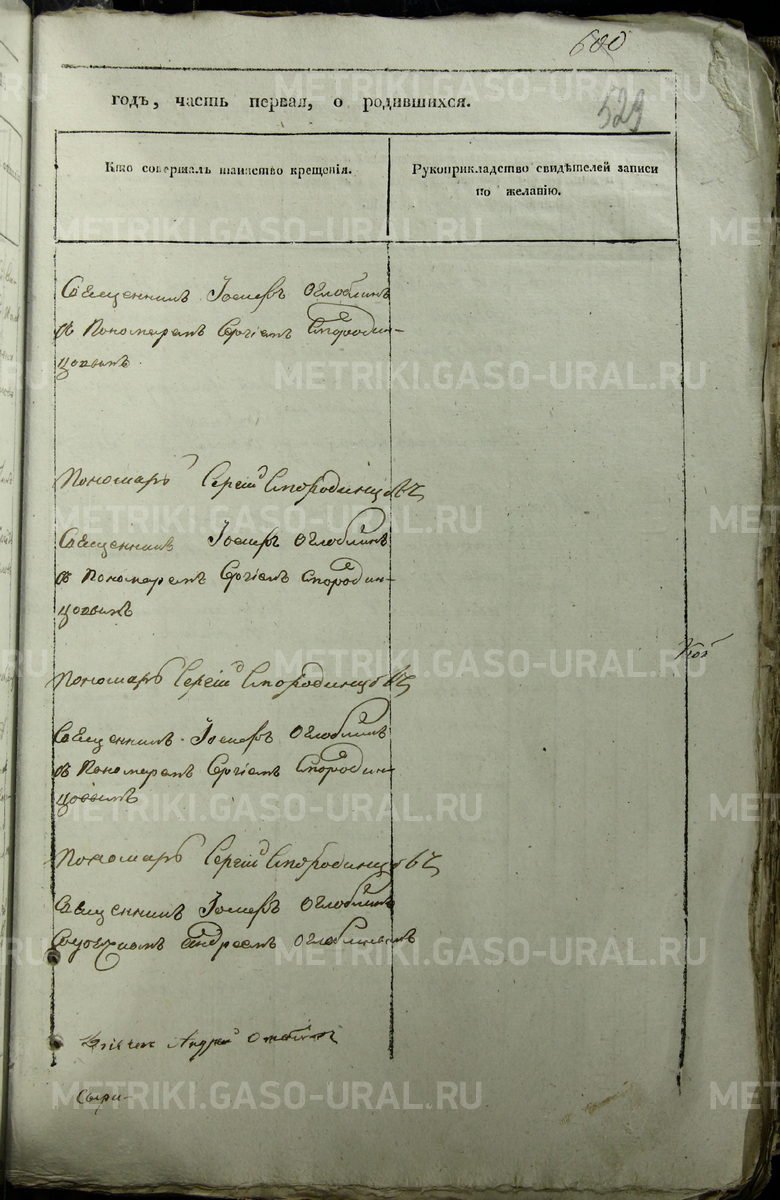 600
529
годъ, часть первая, о родившихся.
Кто совершалъ таинство крещенія.
Рукоприкладство свидѣтелей записи
по желанію.
Священникъ Іосифъ Оглоблинъ
съ Пономаремъ Сергіемъ Смородин-
цовымъ
Пономарь Сергій Смородинцовъ
Священникъ Іосифъ Оглоблинъ
съ Пономаремъ Сергіемъ Смородин-
цовымъ
Пономарь Сергій Смородинцовъ
Священникъ Іосифъ Оглоблинъ
съ Пономаремъ Сергіемъ Смородин-
цовымъ
Пономарь Сергій Смородинцовъ
Священникъ Іосифъ Оглоблинъ
Андреемъ Оглоблинымъ
Андрей
METRIKI.GASO-URAL.RU